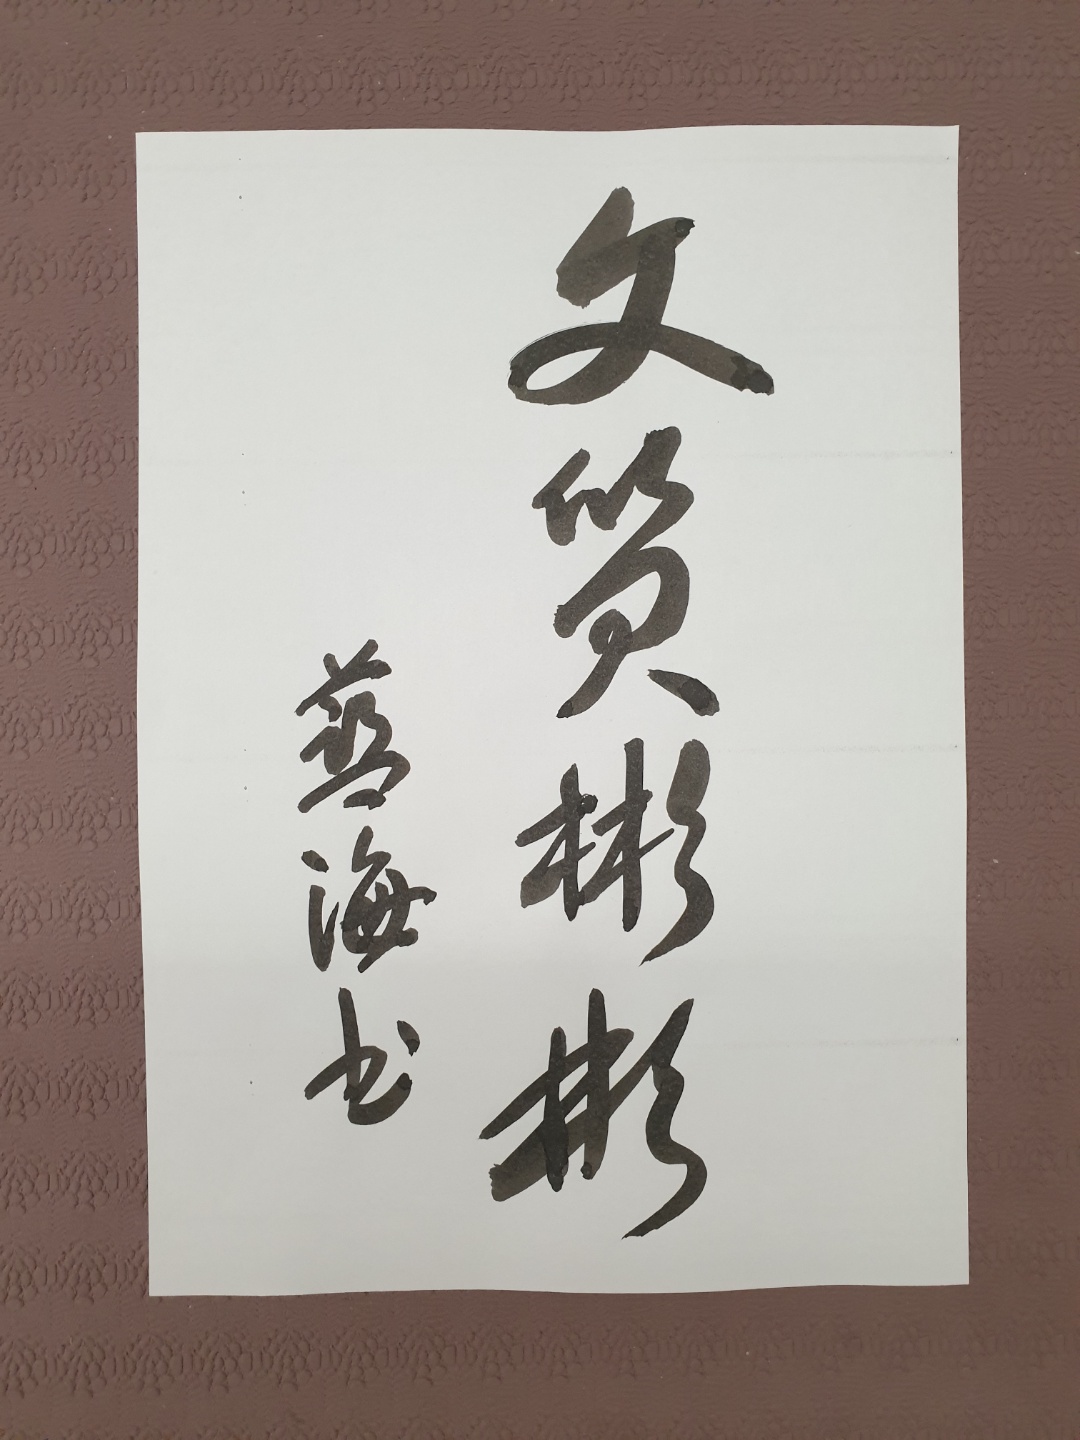 文质彬彬
蓝海书